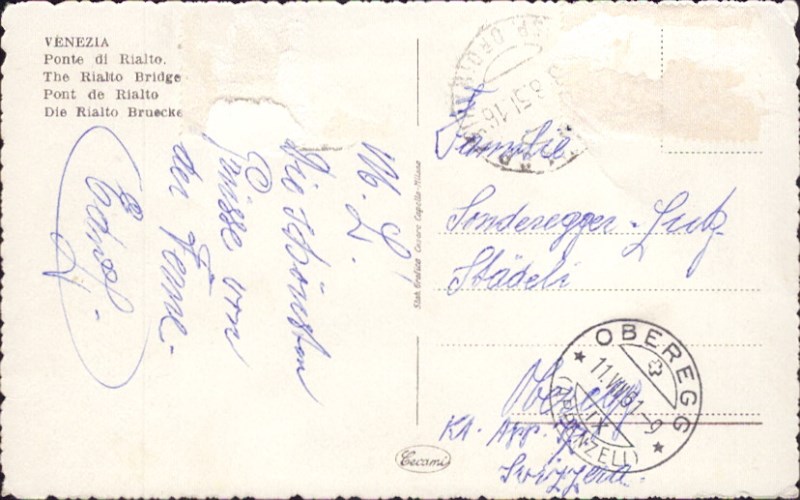 VENEZIA
Ponte di Rialto.
The Rialto Bridge
Pont de Rialto
Die Rialto Bruecke
M. L.
Die schönsten
Grüsse von
der Ferne.
Stab. Grafico Cesare Capello - Milano
Cecami
Familie
Sonderegger - Lutz
Städeli
Oberegg
Kt. App.
Svizzera.
OBEREGG
(APPENZELL)